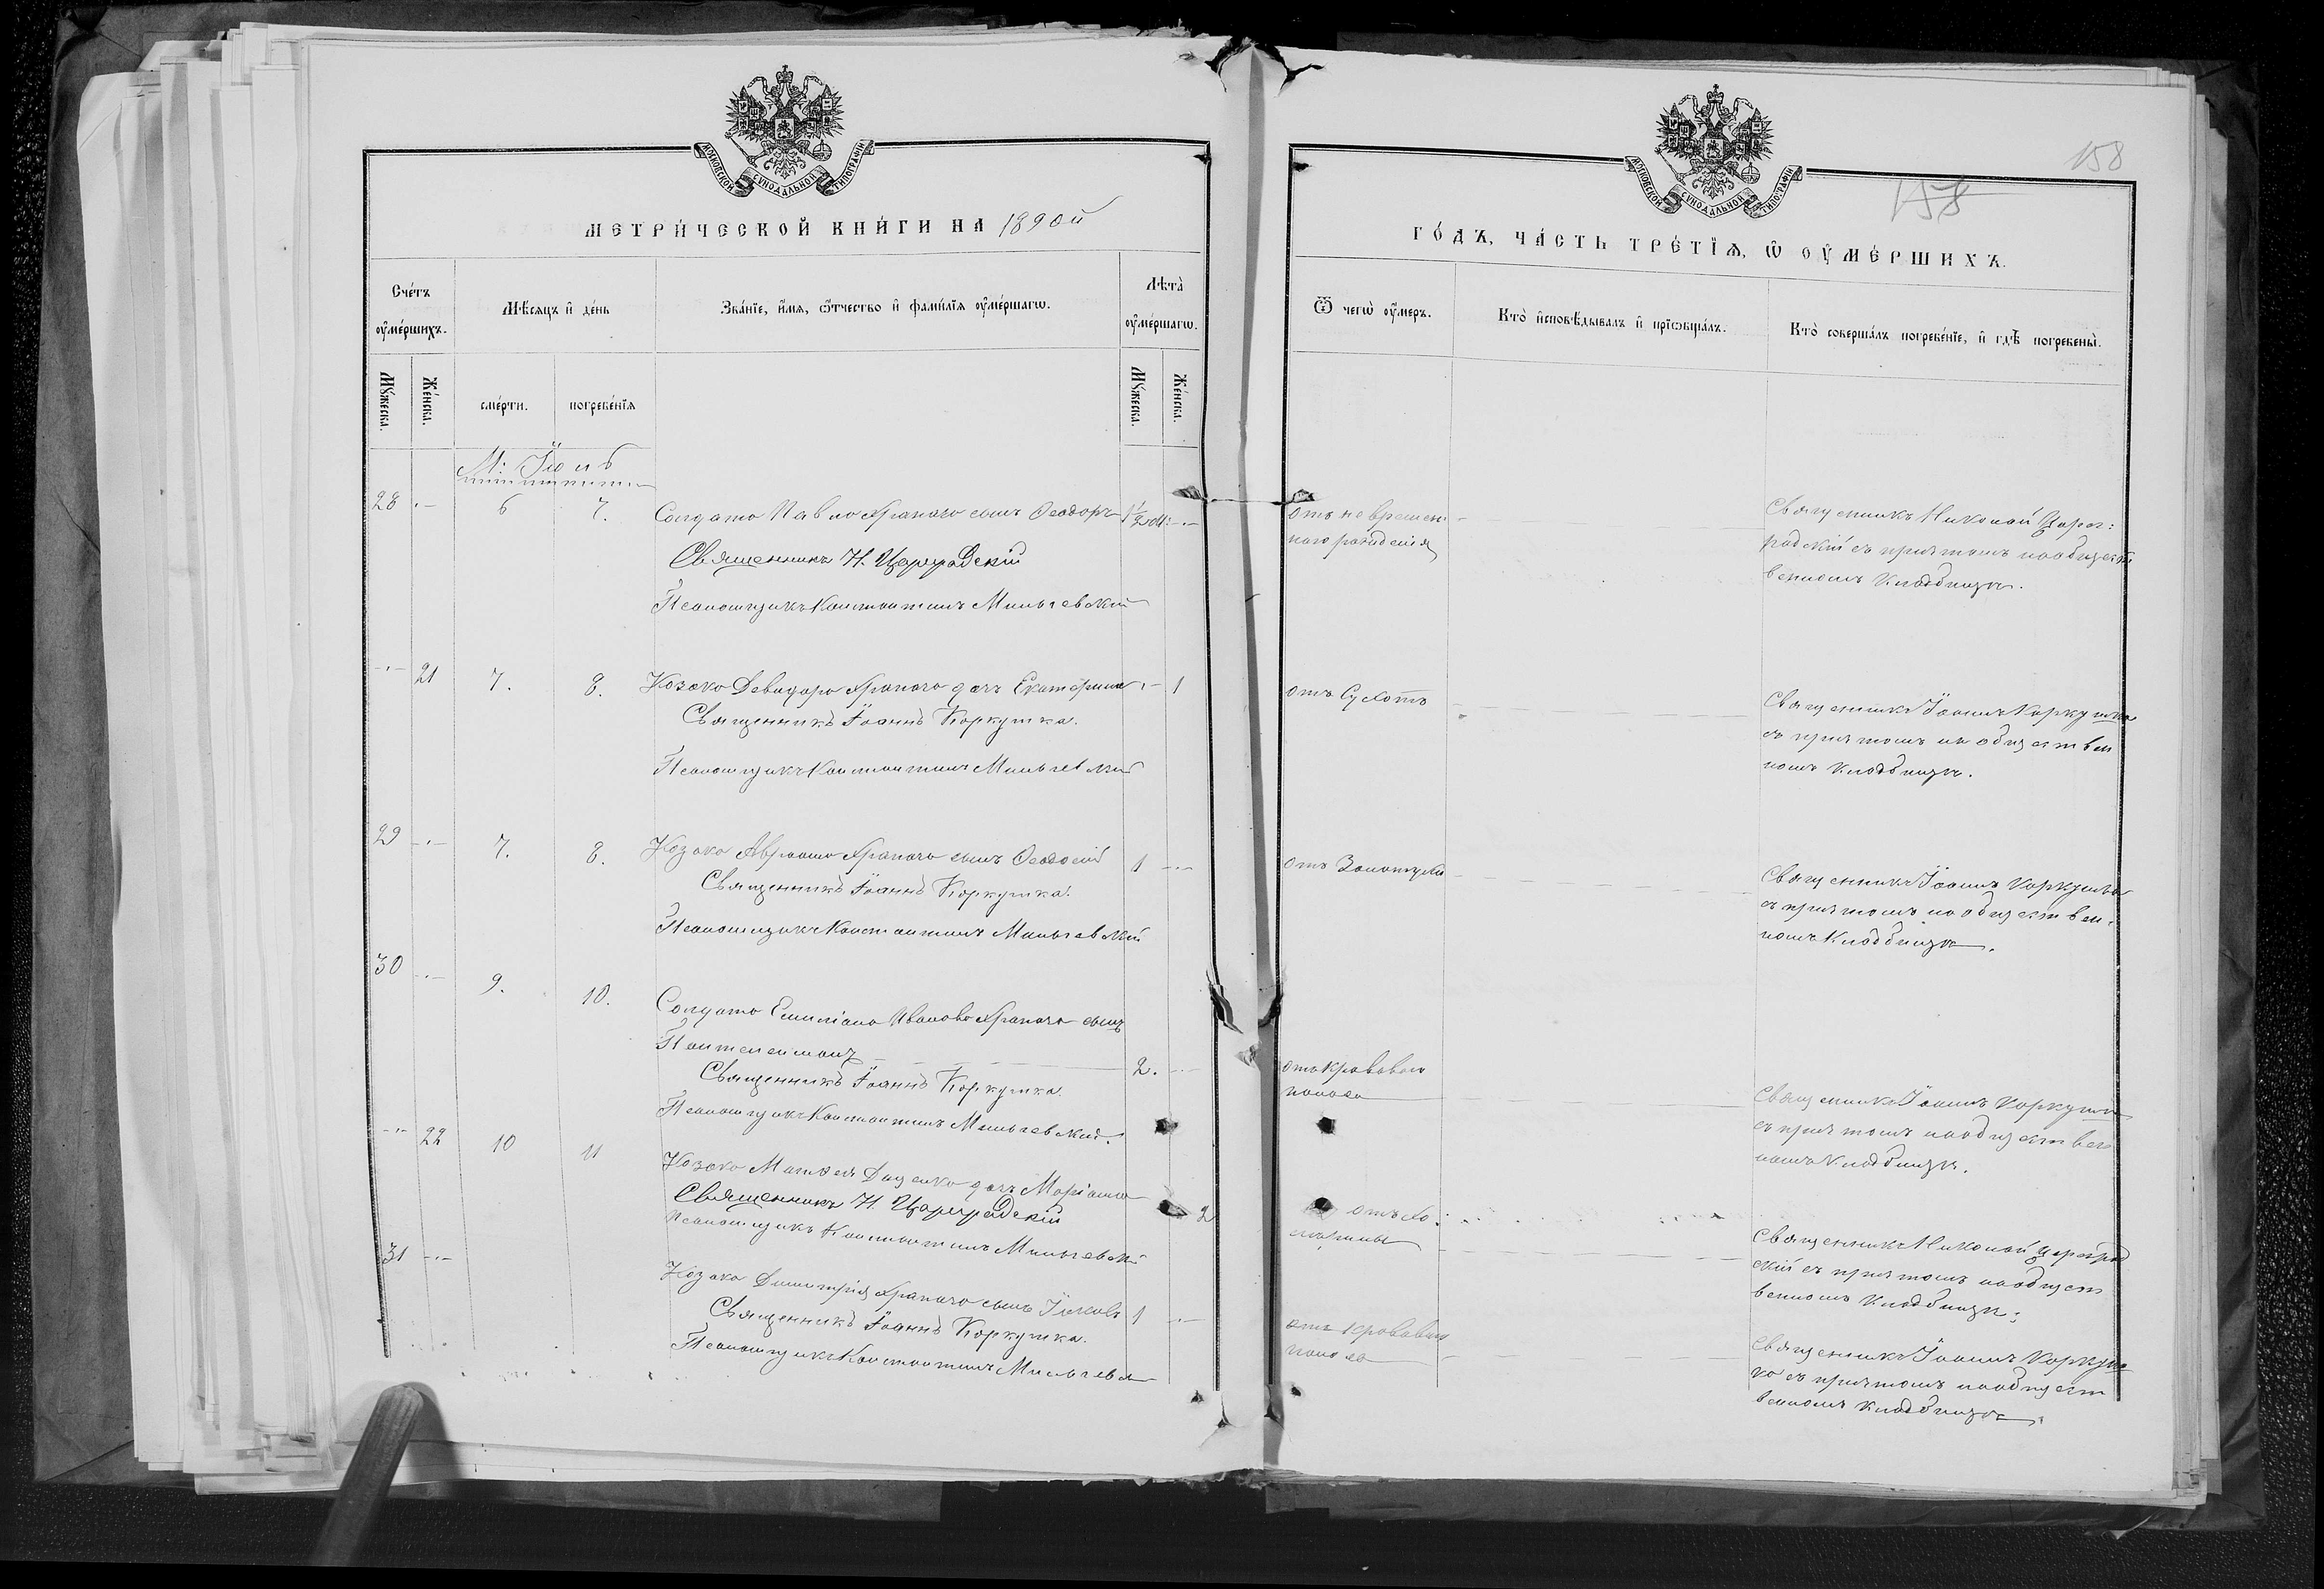 МОСКОВСКОЙ СѴНОДАЛЬНОЙ ТИПОГРАФІИ
МЕТРИ́ЧЕСКОЙ КНИ́ГИ НА 1890й
Сче́тъ ᲂу҆ме́ршихъ.
Мѣ́сяцъ и҆ де́нь
Зва́нїе, и҆́мя, ѻ҆́тчество и҆ фами́лїя ᲂу҆ме́ршагѡ.
Лѣта̀ ᲂу҆ме́ршагѡ.
Мꙋ́жеска.
Же́нска.
сме́рти.
погребе́нїя
Мꙋ́жеска.
Же́нска.
М: Іюль
28 6 7. Солдата Павла Храпача сынъ Ѳеодоръ 1½ год:
Священникъ Н. Цареградскій
Псаломщикъ Константинъ
21 7. 8. Козака Храпача дочь Екатерина 1
Священникъ Іоаннъ Коркушка.
Псаломщикъ Константинъ
29 7. 8. Козака Храпача сынъ Ѳеодосій 1
Священникъ Іоаннъ Коркушка.
Псаломщикъ Константинъ
30 9. 10. Солдата Емиліана Иванова Храпача сынъ
Пантелеимонъ 2.
Священникъ Іоаннъ Коркушка.
Псаломщикъ Константинъ
22 10 11 Козака Матѳея дочь 2
Священникъ Н. Цареградскій
Псаломщикъ Константинъ
31 Козака Димитрія Храпача сынъ 1
Священникъ Іоаннъ Коркушка.
Псаломщикъ Константинъ
МОСКОВСКОЙ СѴНОДАЛЬНОЙ ТИПОГРАФІИ
158
158
ГО́ДЪ, ЧА́СТЬ ТРЕ́ТЇѦ, Ѡ҆ ОУ҆МЕ́РШИХЪ.
Ѿ чегѡ̀ ᲂу҆́меръ.
Кто̀ и҆сповѣ́дывалъ и҆ прїѡбща́лъ.
Кто̀ соверша́лъ погребе́нїе, и҆ гдѣ̀ погребены̀.
отъ не времен
наго рождения
Священникъ Николай Царег:
радскій съ причтомъ на общест
венномъ кладбищѣ.
отъ Сухотъ
Священникъ Іоаннъ Коркушка
съ причтомъ на обществен
номъ кладбищѣ.
отъ Золотухи
Священникъ Іоаннъ Коркушка
съ причтомъ на обществен.
номъ кладбищѣ.
отъ кроваваго
поноса
Священникъ Іоаннъ Коркушка
съ причтомъ на обществен
номъ кладбищѣ.
отъ
Священникъ Николай Цареград
скій съ причтомъ на общест
венномъ кладбищѣ;
отъ кроваваго
поноса
Священникъ Іоаннъ Коркуш
ка съ причтомъ на общест
венномъ кладбищѣ.